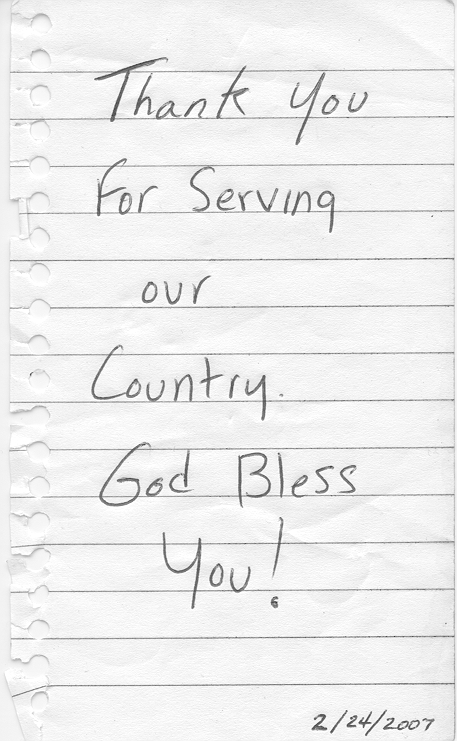 Thank You
For Serving
our
Country.
God Bless
You!
2/24/2007